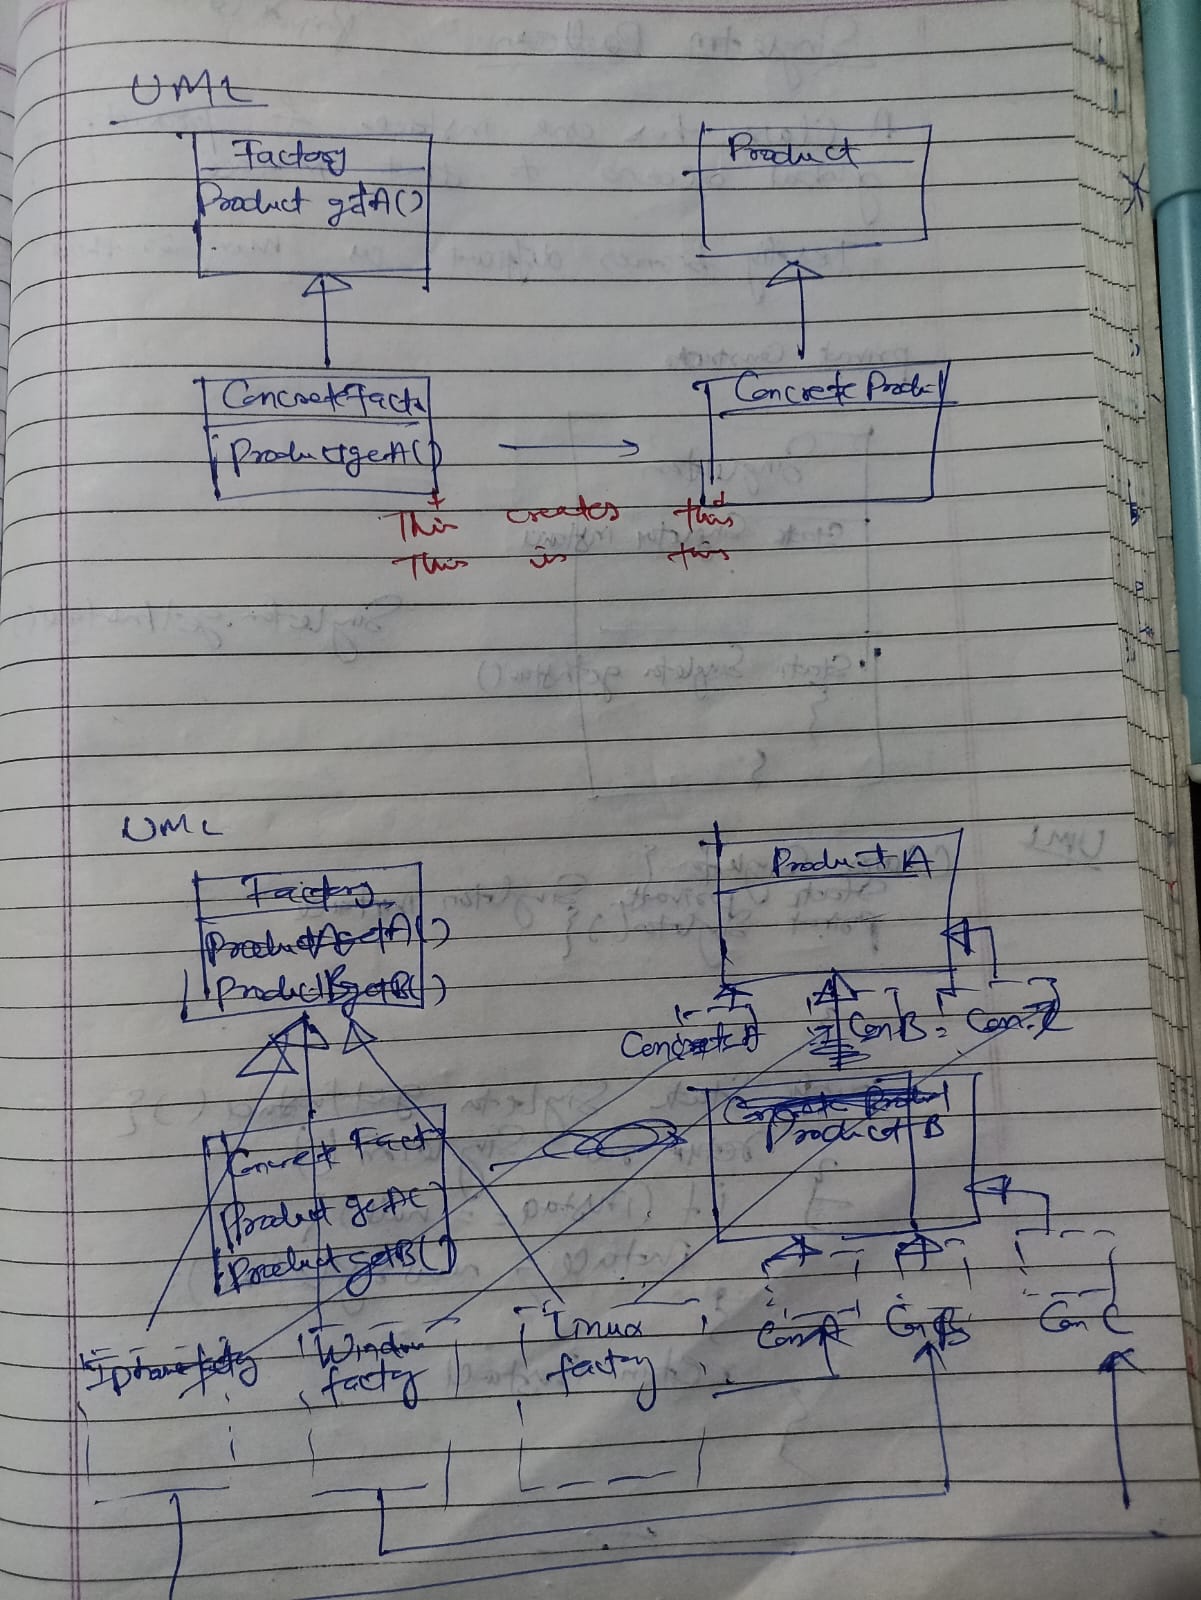 UML
Factory
Product getA()
Product
ConcreteFacto
Product getA()
Concrete Product
This creates this
This is this
UML
Factory
ProductA getA()
ProductB getB()
Product A
Concrete A
Con B
Con
Concrete Fact
Product getA()
Product getB()
Concrete Product
Product B
Iphone facty
Window
facty
Linux
factory
Con A
Con B
Con C